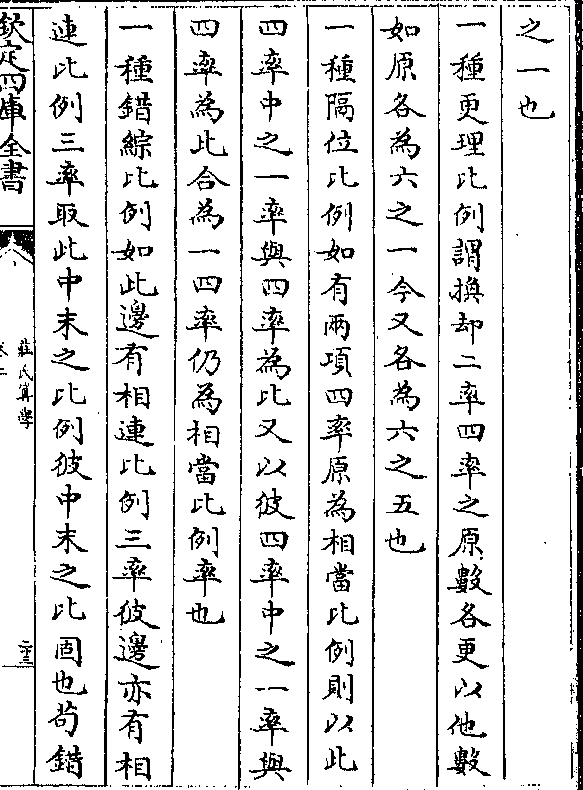 之一也
一種更理比例謂換却二率四率之原數各更以他數
如原各為六之一今又各為六之五也
一種隔位比例如有兩項四率原為相當比例則以此
四率中之一率與四率為比又以彼四率中之一率與
四率為比合為一四率仍為相當比例率也
一種錯綜比例如此邊有相連比例三率彼邊亦有相
連比例三率取此中末之比例彼中末之比固也茍錯
欽定四庫全書
莊氏算學
卷二
二十三